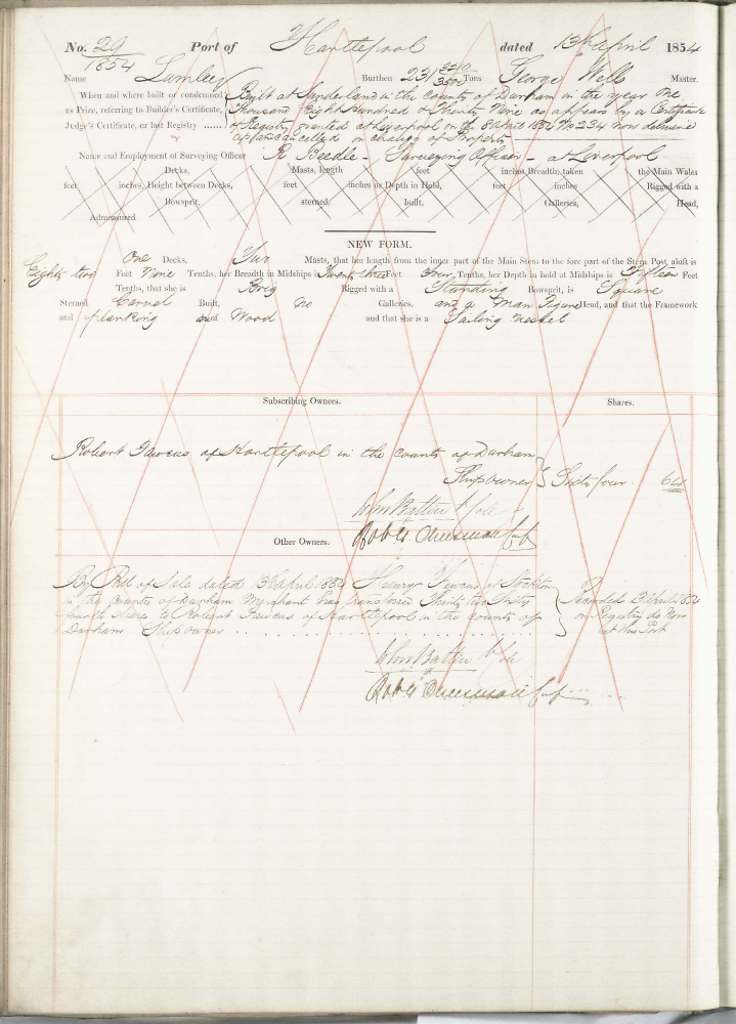 No. 29/1854 Port of Hartlepool dated 13th April 1854
Name Lumley Burthen 231 2210/3500 Tons George Wells Master.
When and where built or condemned Built at Sunderland in the County of Durham in the year One
as Prize, referring to Builder's Certificate, Thousand Eight Hundred & Thirty Nine as appears by a Certificate
Judge's Certificate, or last Registry ...... of Registry granted at Liverpool on the 8 April 1852 No 234 now delivered
up & cancelled on change of Property
Name and Employment of Surveying Officer R Beedle - Surveying Officer - at Liverpool
Decks, Masts, length feet inches Breadth, taken the Main Wales
feet inches, Height between Decks, feet inches or Depth in Hold, feet inches Rigged with a
Bowsprit, sterned, built, Galleries, Head,
Admeasured
NEW FORM.
One Decks, Two Masts, that her length from the inner part of the Main Stem to the fore part of the Stern Post aloft is
Eighty two Feet Nine Tenths, her Breadth in Midships is Twenty three Feet Four Tenths, her Depth in hold at Midships is Fifteen Feet
Tenths, that she is Brig Rigged with a Standing Bowsprit, is Square
Sterned Carvel Built, no Galleries, and a Man Figure Head, and that the Framework
and planking is of Wood and that she is a Sailing Vessel
Subscribing Owners. Shares.
Robert Fawcus of Hartlepool in the County of Durham
Ship owner Sixty four 64
John Batten
Other Owners.
By Bill of Sale dated 3 April 1854 Henry Fawcus of Stockton
in the County of Durham Merchant has transferred Thirty two Sixty
fourth shares to Robert Fawcus of Hartlepool in the County of
Durham Ship owner
Recorded 13 April 1854
on Registry de Novo
at this Port
John Batten